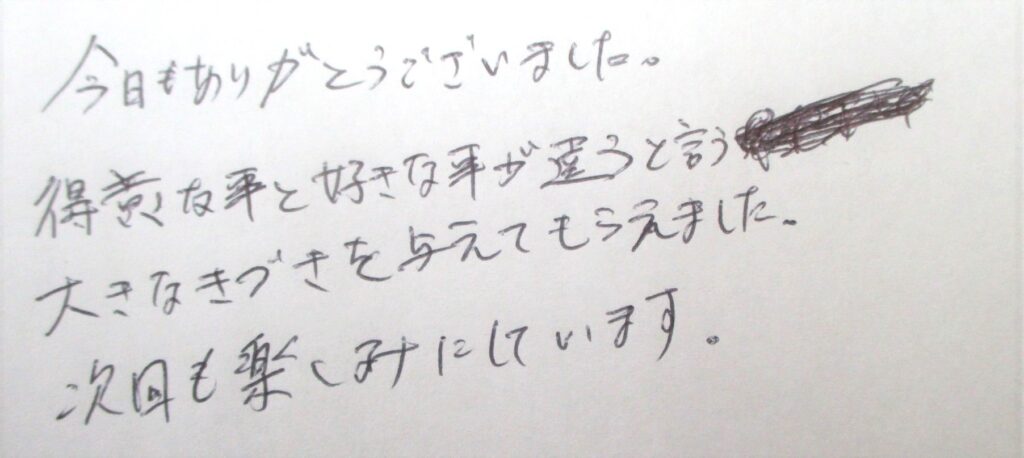 今日もありがとうございました。
得意な事と好きな事が違うと言う
大きなきづきを与えてもらえました。
次回も楽しみにしています。